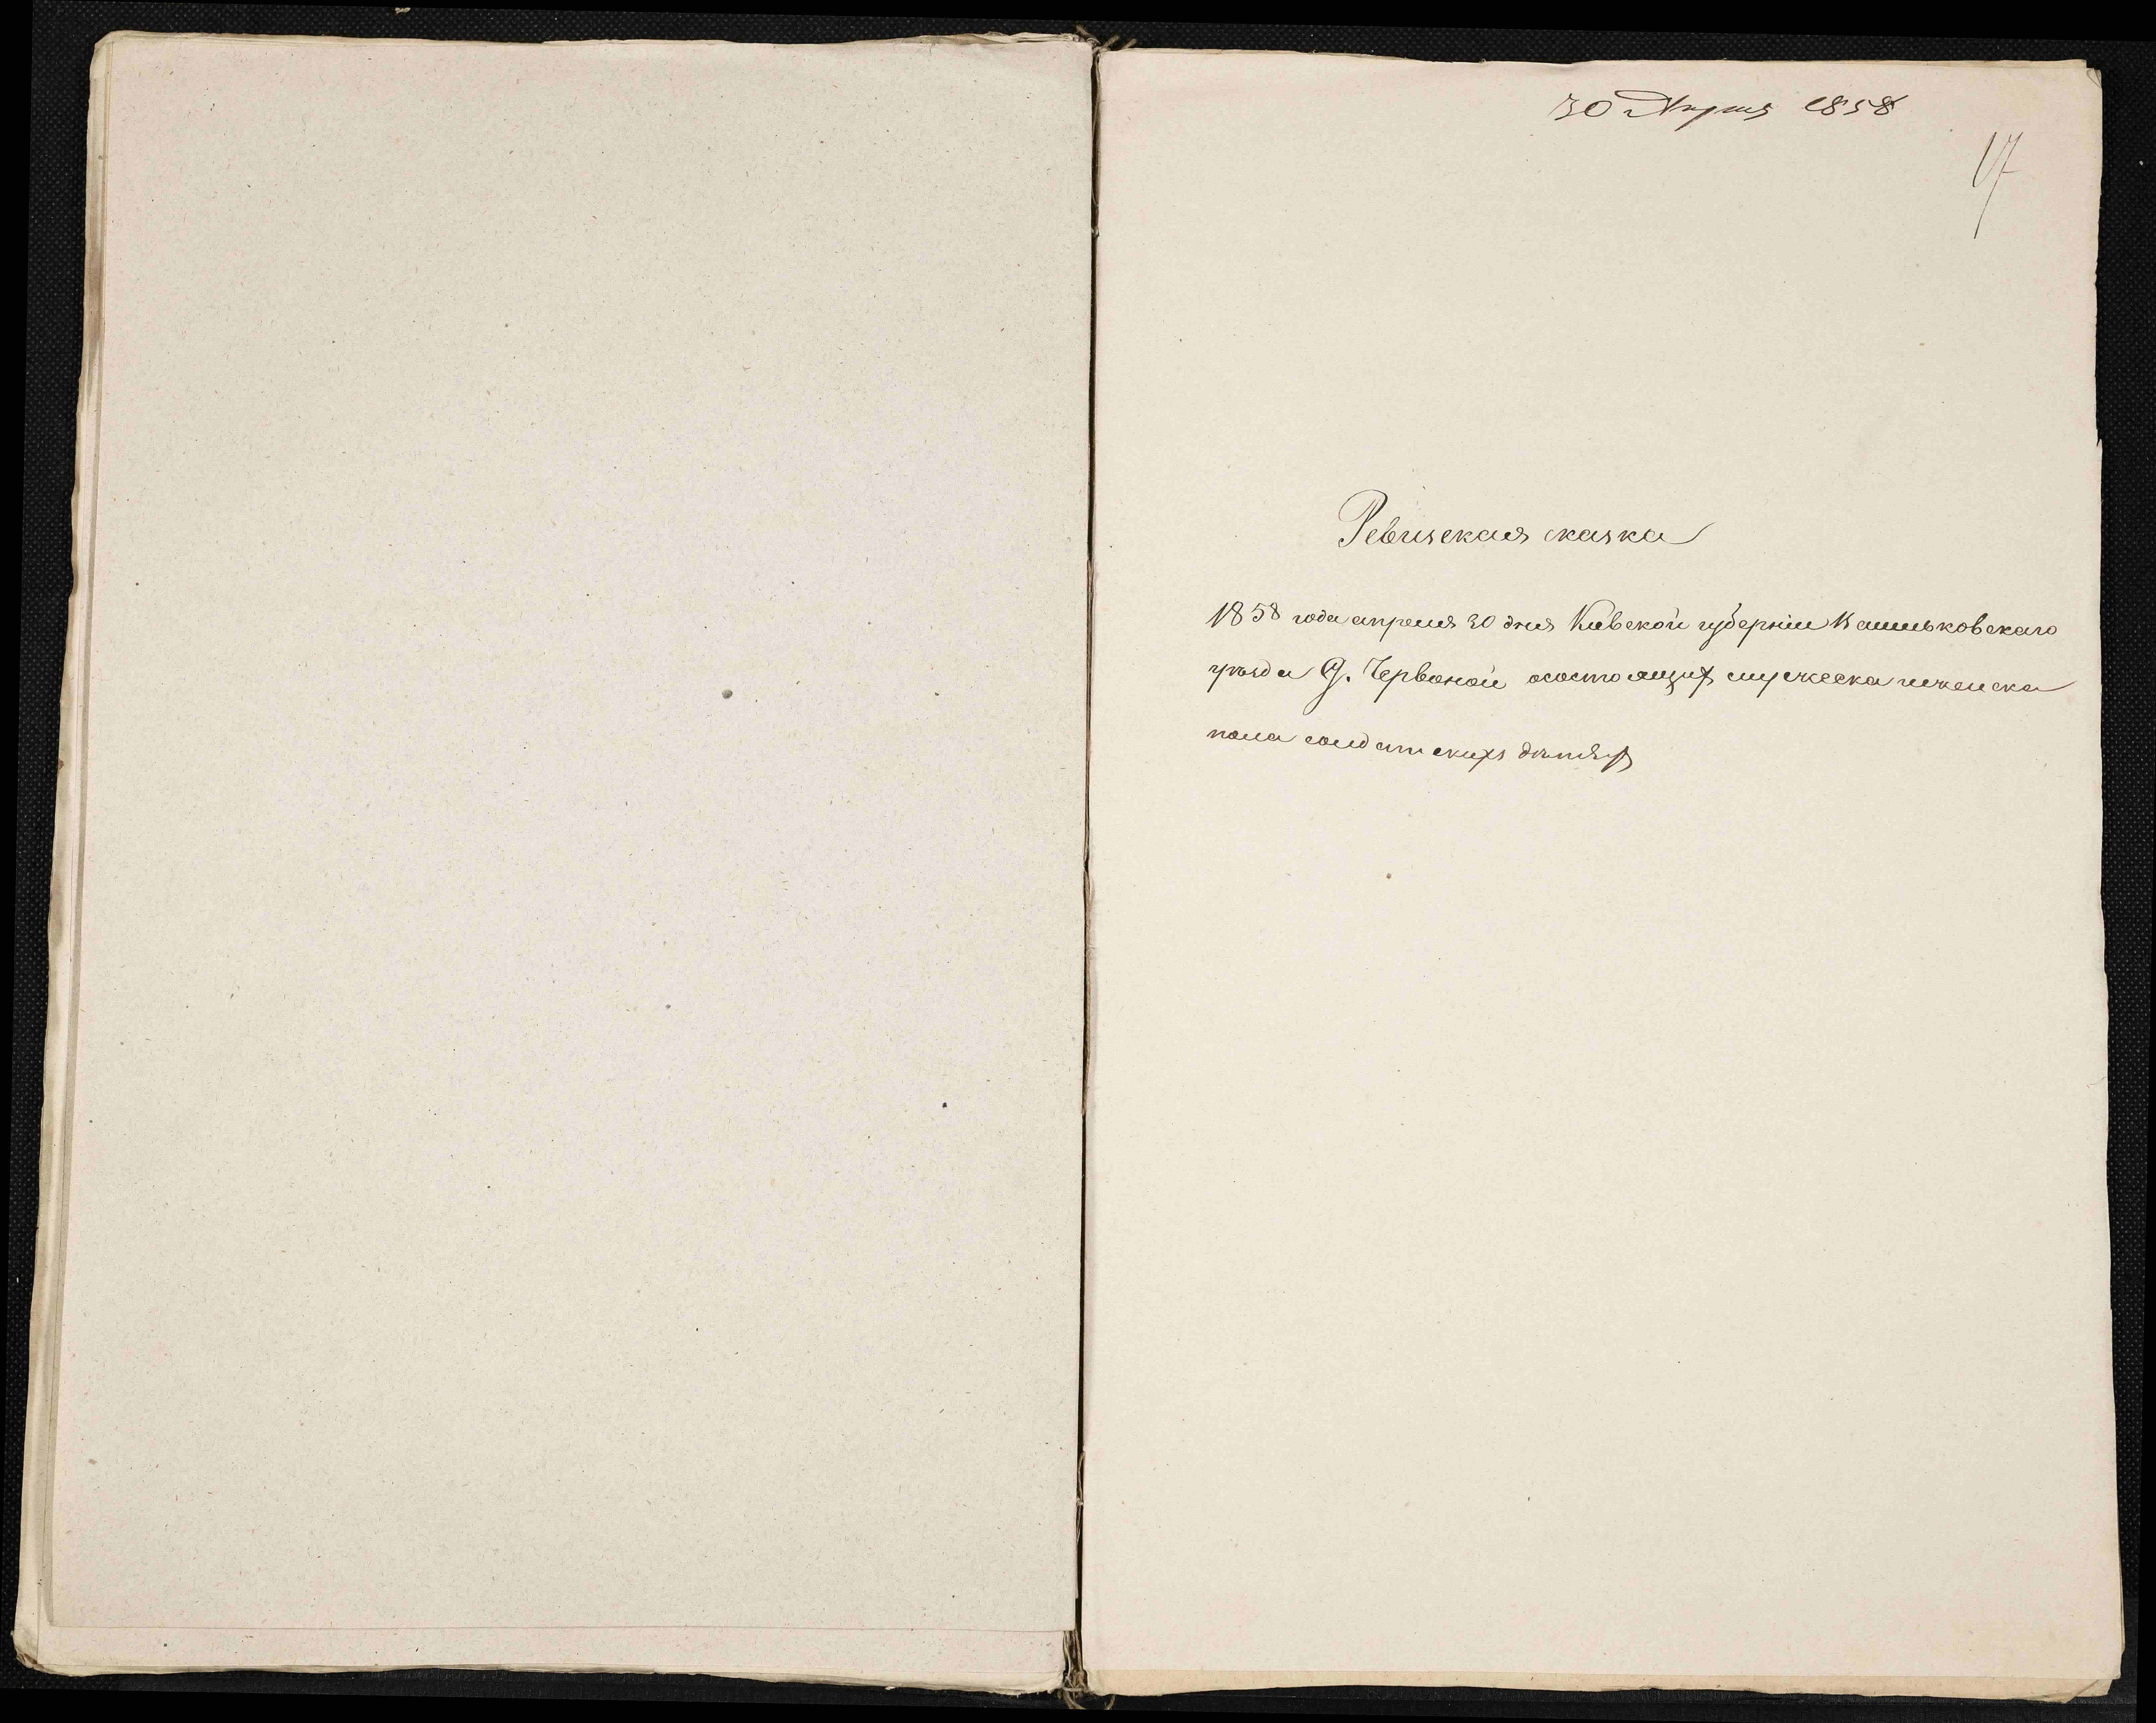 30 Апреля 1858
17
Ревизская сказка
1858 года апреля 30 дня Кивской губернии Васильковскаго
уѣзда Д. Червоной осостоящих мужеска иженска
пола солдатских дѣтях